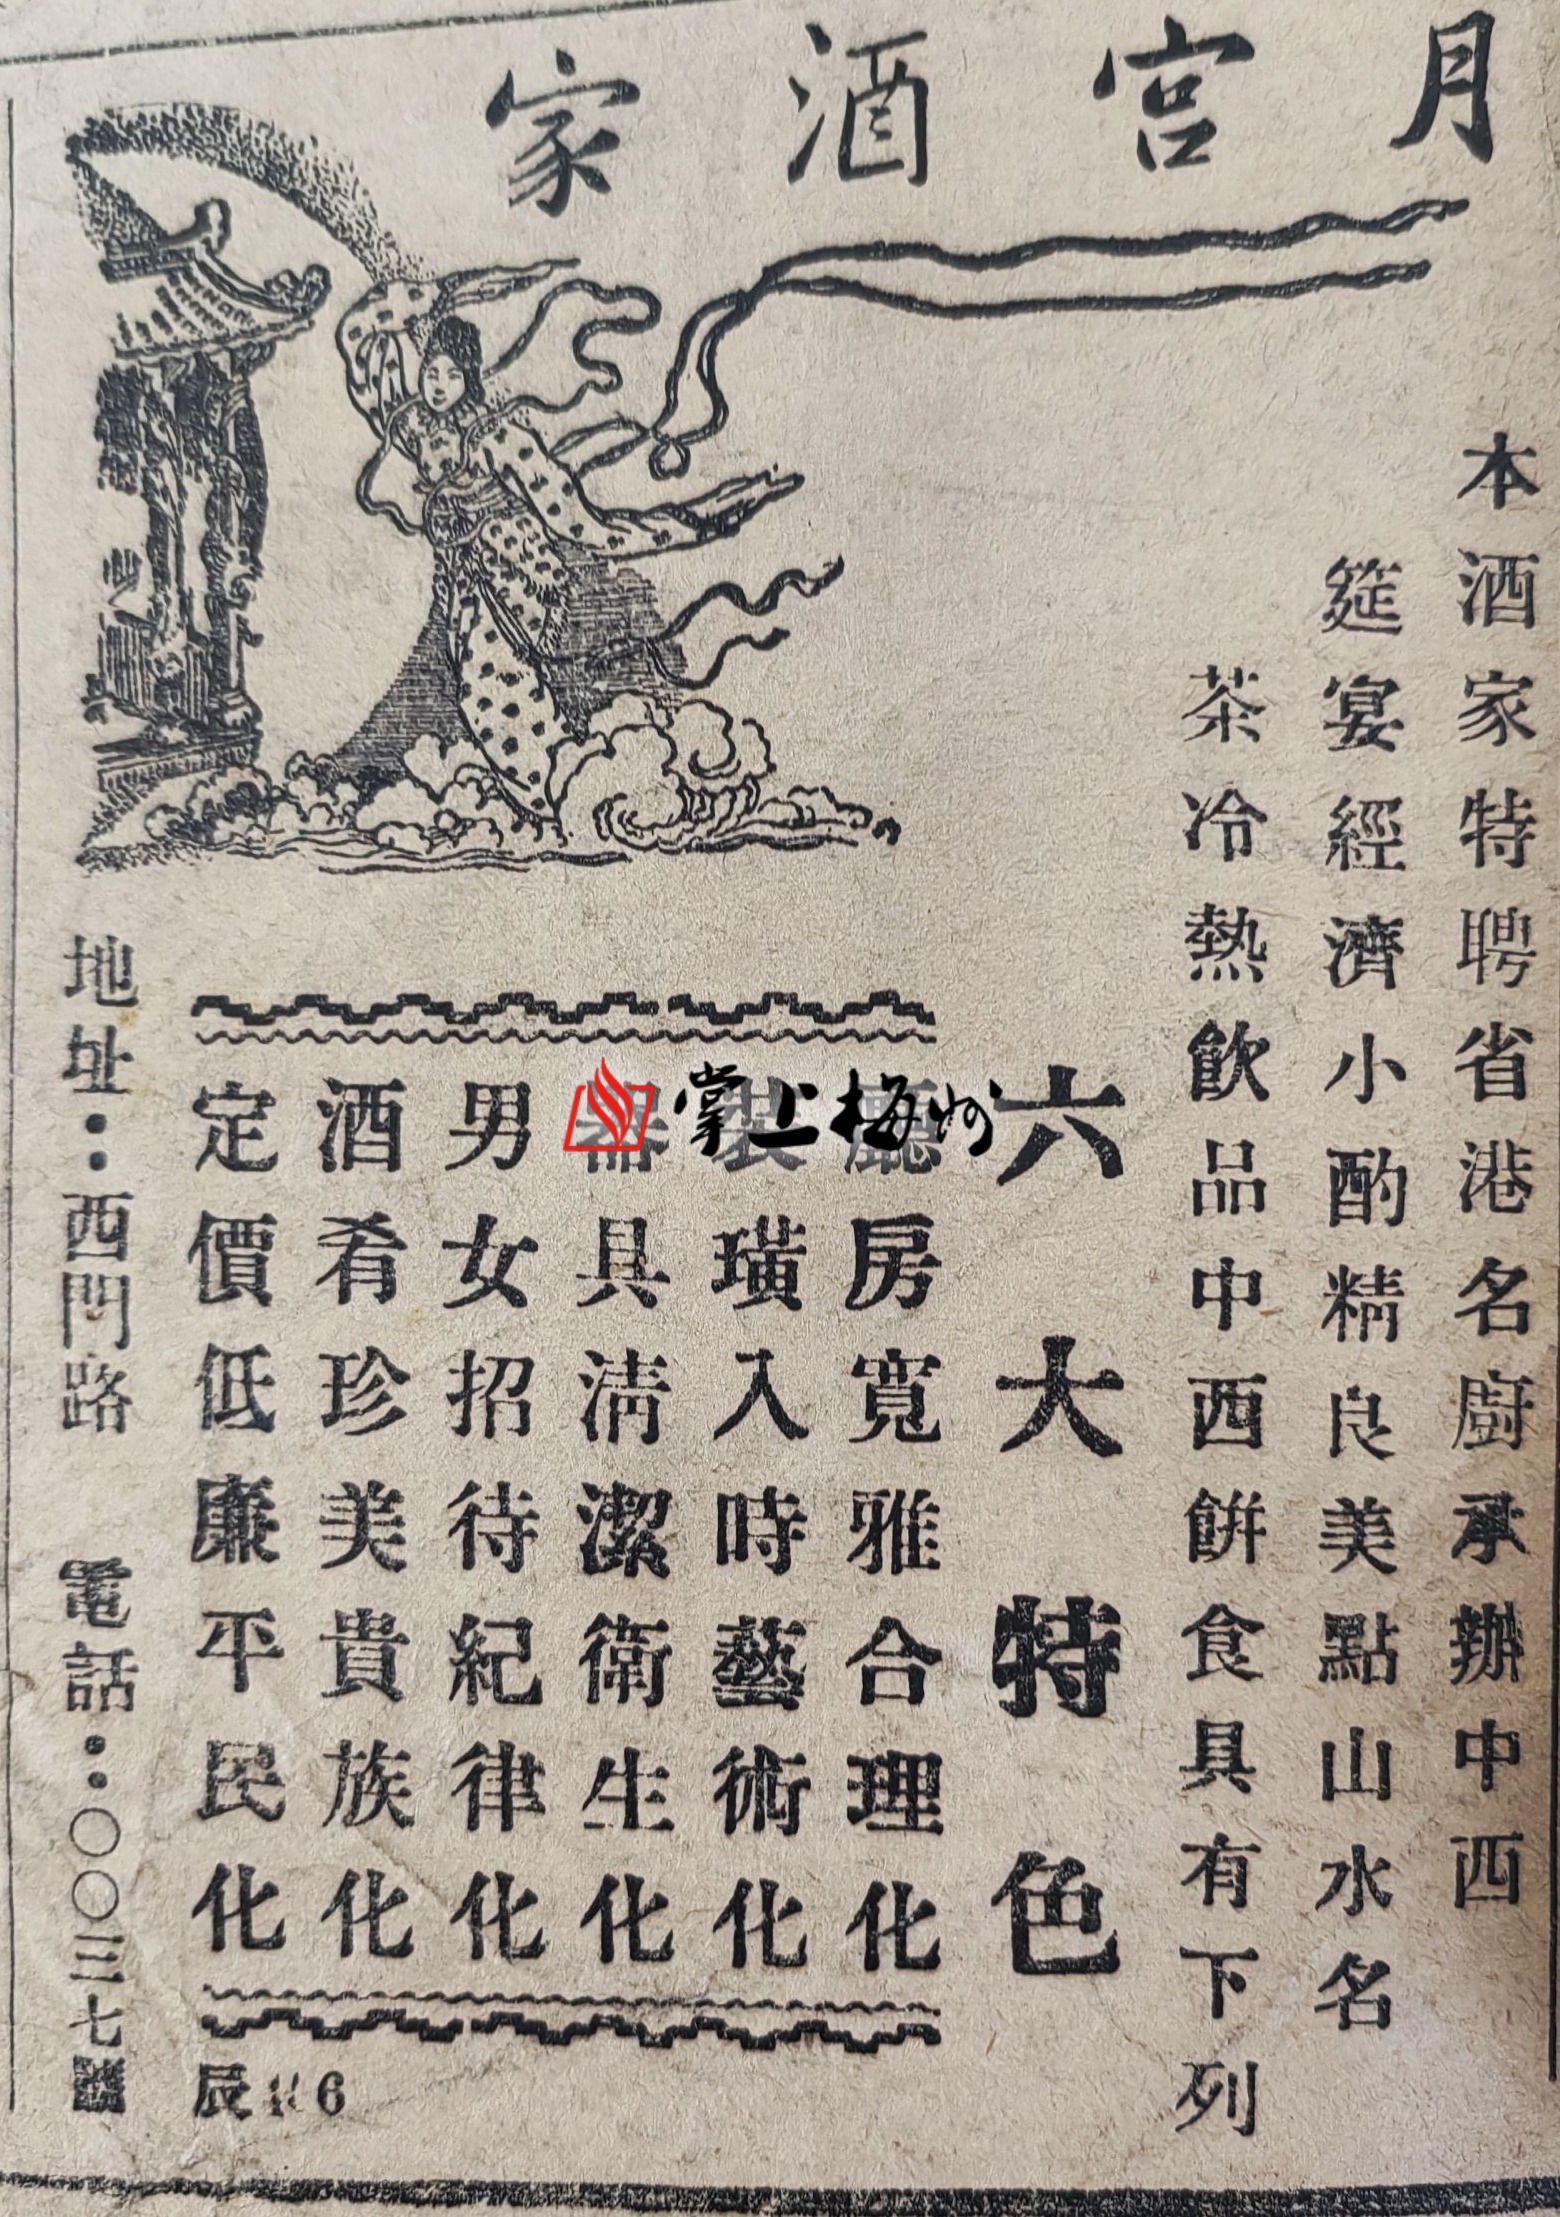 月宮酒家
本酒家特聘省港名廚承辦中西
筵宴經濟小酌精良美點山水名
茶冷熱飲品中西餅食具有下列
六大特色
廳房寬雅合理化
裝璜入時藝術化
器具清潔衛生化
男女招待紀律化
酒肴珍美貴族化
定價低廉平民化
地址：西門路 電話：〇〇三七號
辰 6
掌上梅州